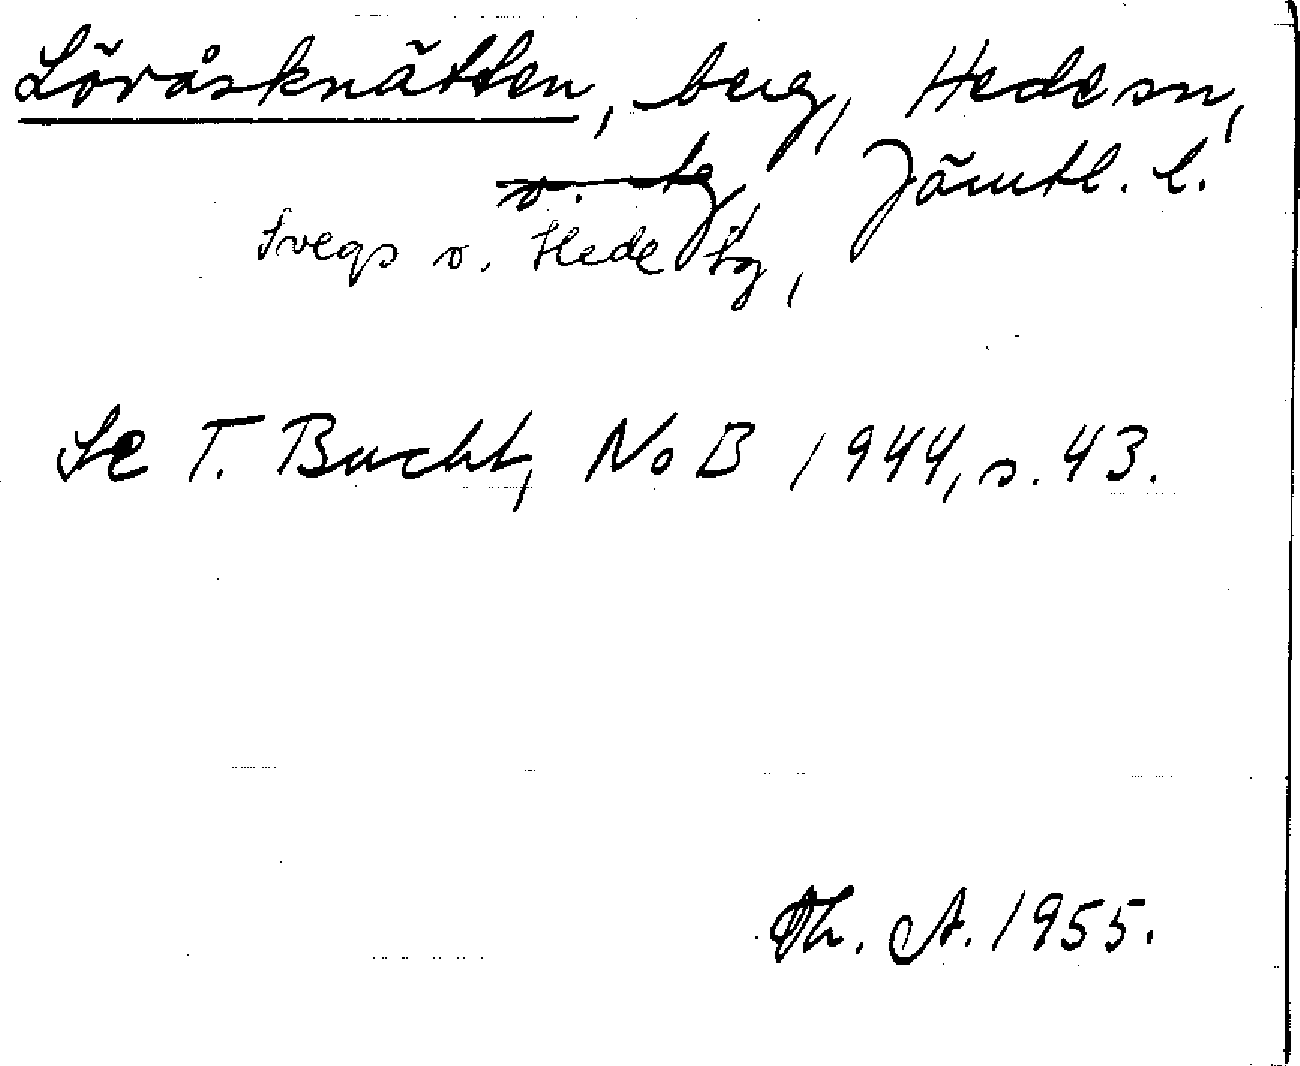 Löråsknätten, berg, Hede sn,
v. tg, Jämtl. l.
Svegs o. Hede tg,
Se T. Bucht, NoB 1944, s. 43.
Th. A. 1955.